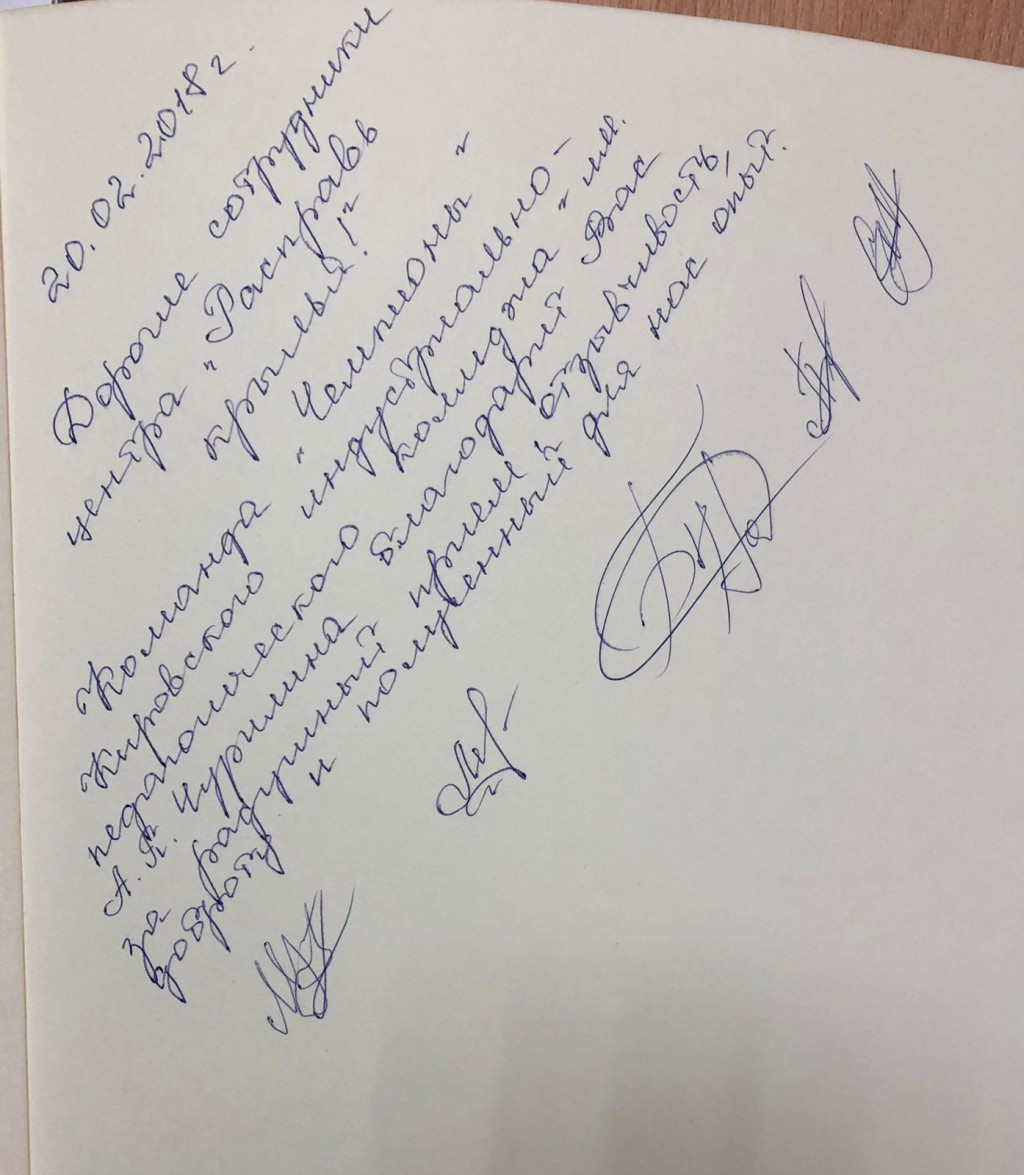 20.02.2018 г.
Дорогие сотрудники
центра "Расправь
крылья!"
Команда "Чемпионы"
Кировского индустриально-
педагогического колледжа" им.
А.П. Чурилина благодарит Вас
за радушный прием, отзывчивость,
доброту и полученный для нас опыт.